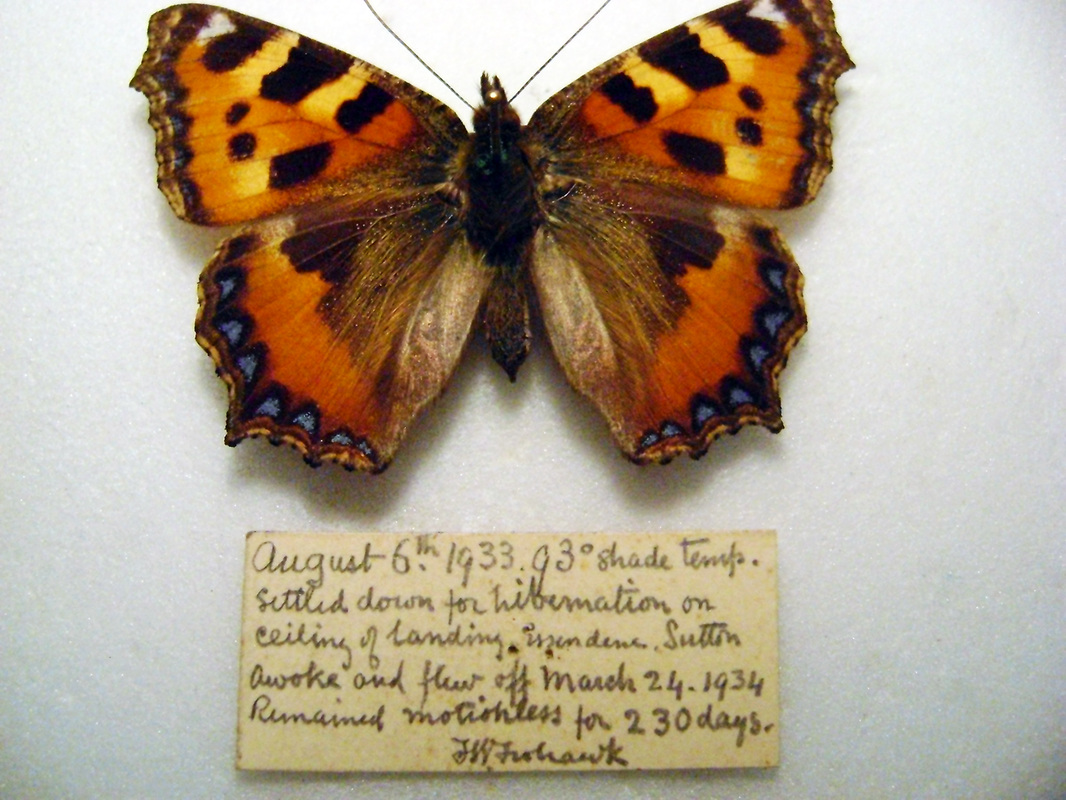 August 6th. 1933. 93° shade temp.
settled down for hibernation on
ceiling of landing. Essendene. Sutton
Awoke and flew off March 24. 1934
Remained motionless for 230 days.
FW Frohawk